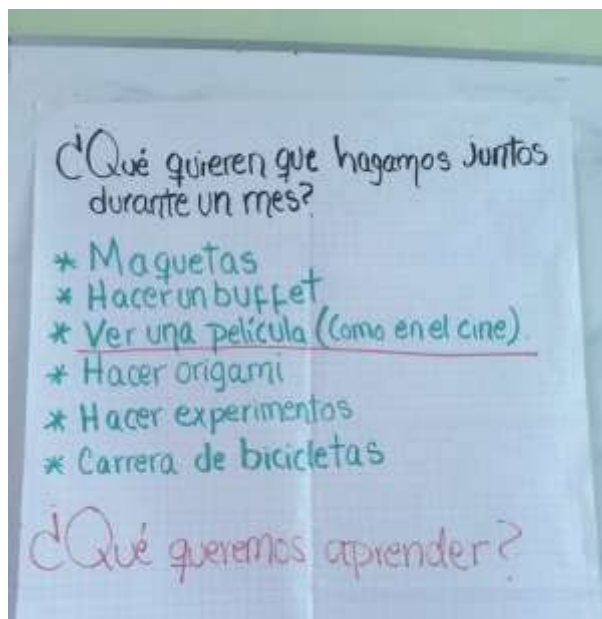 ¿Qué quieren que hagamos juntos
durante un mes?
* Maquetas
* Hacer un buffet
* Ver una película (como en el cine).
* Hacer origami
* Hacer experimentos
* Carrera de bicicletas
¿Qué queremos aprender?